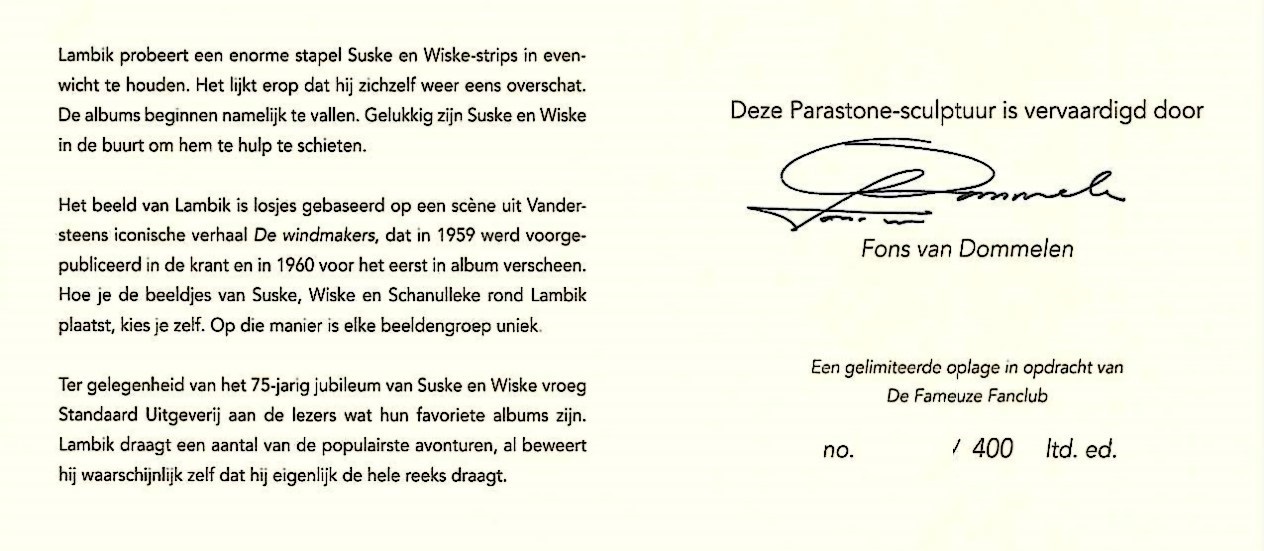 Lambik probeert een enorme stapel Suske en Wiske-strips in even-
wicht te houden. Het lijkt erop dat hij zichzelf weer eens overschat.
De albums beginnen namelijk te vallen. Gelukkig zijn Suske en Wiske
in de buurt om hem te hulp te schieten.
Het beeld van Lambik is losjes gebaseerd op een scène uit Vander-
steens iconische verhaal De windmakers, dat in 1959 werd voorge-
publiceerd in de krant en in 1960 voor het eerst in album verscheen.
Hoe je de beeldjes van Suske, Wiske en Schanulleke rond Lambik
plaatst, kies je zelf. Op die manier is elke beeldengroep uniek.
Ter gelegenheid van het 75-jarig jubileum van Suske en Wiske vroeg
Standaard Uitgeverij aan de lezers wat hun favoriete albums zijn.
Lambik draagt een aantal van de populairste avonturen, al beweert
hij waarschijnlijk zelf dat hij eigenlijk de hele reeks draagt.
Deze Parastone-sculptuur is vervaardigd door
Fons van Dommelen
Een gelimiteerde oplage in opdracht van
De Fameuze Fanclub
no. / 400 ltd. ed.